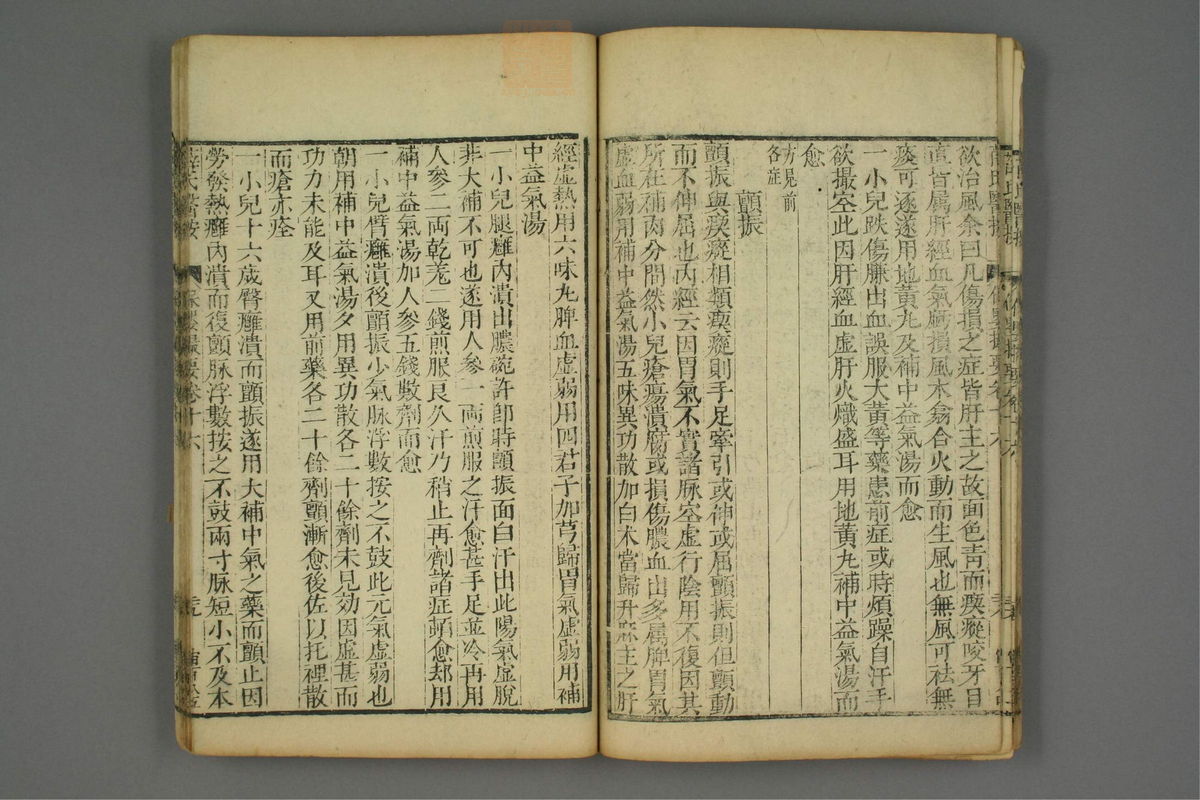 欲治風余曰凡傷損之症皆肝主之故面色青而瘈瘲咬牙目
直皆屬肝經血氣虧損風木翕合火動而生風也無風可祛無
痰可逐遂用地黄丸及補中益氣湯而愈
一小兒跌傷臁出血誤服大黄等藥患前症或時煩躁自汗手
欲撮空此因肝經血虛肝火熾盛耳用地黄丸補中益氣湯而
愈
方見前
各症
顫振
顫振與瘈瘲相類瘈瘲則手足牽引或伸或屈顫振則但顫動
而不伸屈也内經云因胃氣不實諸脉空虛行陰用不復因其
所在補内分間然小兒瘡瘍潰腐或損傷膿血出多屬脾胃氣
虛血弱用補中益氣湯五味異功散加白术當歸升麻主之肝
經虛熱用六味丸脾血虛弱用四君子加芎歸胃氣虛弱用補
中益氣湯
一小兒腿癰内潰出膿碗許卽時顫振面白汗出此陽氣虛脫
非大補不可也遂用人參一兩煎服之汗愈甚手足並冷再用
人參二兩乾羌二錢煎服良久汗乃稍止再劑諸症頓愈却用
補中益氣湯加人參五錢數劑而愈
一小兒臂癰潰後顫振少氣脉浮數按之不鼓此元氣虛弱也
朝用補中益氣湯夕用異功散各二十餘劑未見効因虛甚而
功力未能及耳又用前藥各二十餘劑顫漸愈後佐以托裡散
而瘡亦痊
一小兒十六歲臀癰潰而顫振遂用大補中氣之藥而顫止因
勞發熱癰内潰而復顫脉浮數按之不鼓兩寸脉短小不及本
薛氏醫按
保嬰撮要卷十六